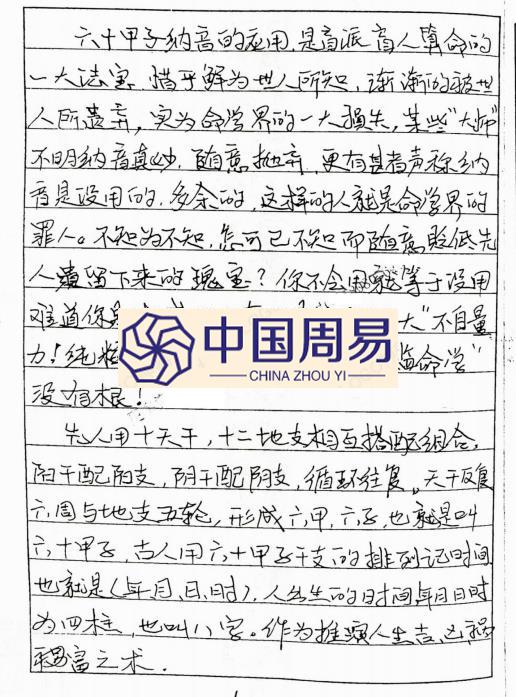 六十甲子纳音的应用,是盲派盲人算命的
一大法宝.惜乎鲜为世人所知,渐渐的被世
人所遗弃,实为命学界的一大损失,某些"大师"
不明纳音真妙,随意抛弃,更有甚者声称纳
音是没用的,多余的,这样的人就是命学界的
罪人。不知为不知,怎可己不知而随意贬低先
人遗留下来的瑰宝?你不会用就等于没用
难道你 大"不自量
力!纯粹 命学"
中国周易
CHINA ZHOU YI
没有根!
先人用十天干,十二地支相互搭配组合,
阳干配阳支,阴干配阴支,循环往复。天干反复
六周与地支五轮,形成六甲,六子,也就是叫
六十甲子,古人用六十甲子干支的排列记时间
也就是(年月,日,时).人出生的时间年月日时
为四柱,也叫八字。作为推测人生吉凶祸
福之术.